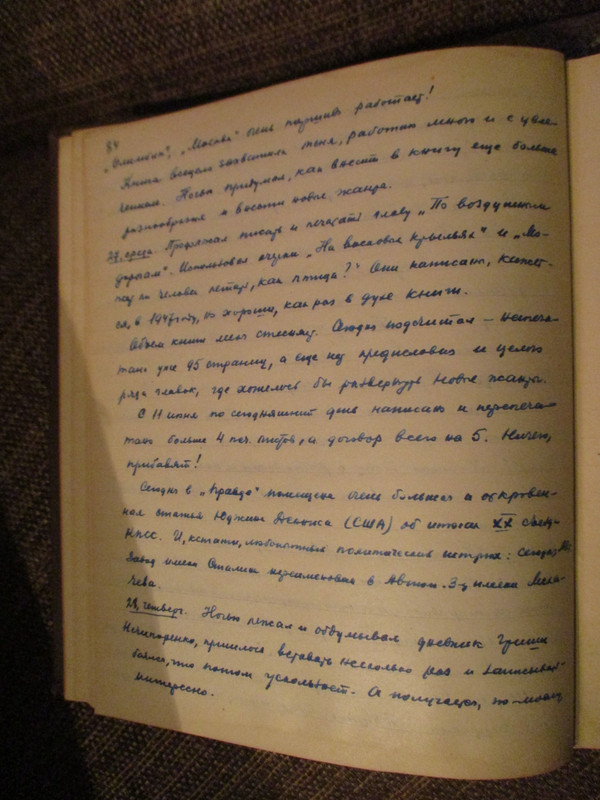 84
„Олимпия", „Москва" очень паршиво работает!
Книга всецело захватила меня, работаю много и с увле-
чением. Ночью придумал, как внести в книгу еще больше
разнообразия и ввести новые жанры.
27, среда. Продолжал писать и печатать главу „По воздушным
дорогам". Использовал очерки „На восковых крыльях" и „Мо-
жет ли человек летать, как птица?" Они написаны, кажет-
ся, в 1947 году, но хороши, как раз в духе книги.
Объем книги меня стесняет. Сегодня подсчитал – напеча-
тано уже 95 страниц, а еще нет предисловия и целого
ряда главок, где хотелось бы развернуть новые жанры.
С 11 июня по сегодняшний день написано и перепеча-
тано больше 4 печ. листов, а договор всего на 5. Ничего,
прибавят!
Сегодня в „Правде" помещена очень большая и откровен-
ная статья Юджина Денниса (США) об итогах XX съезда
КПСС. И, кстати, любопытный политический штрих: сегодня
Завод имени Сталина переименован в Автом. З-д имени Лиха-
чева.
28, четверг. Ночью лежал и обдумывал дневник Гриши
Нечипоренко, пришлось вставать несколько раз и записывать
боялся, что потом ускользнет. А получается, по-моему
интересно.